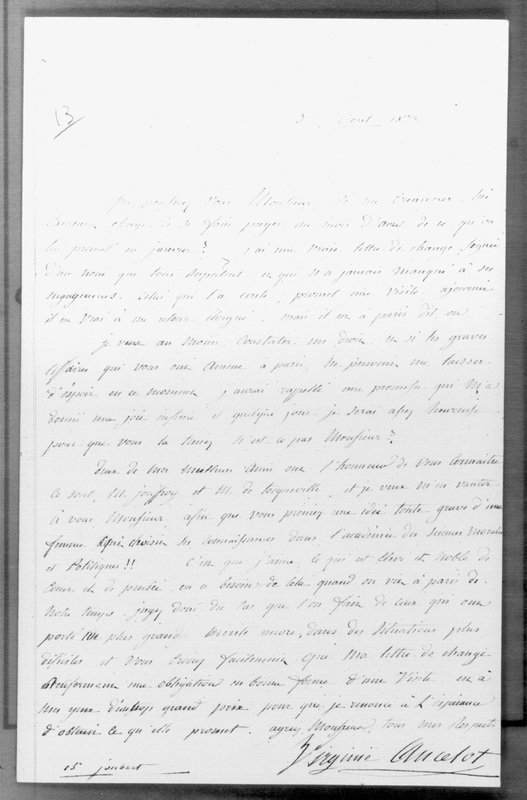 13
3 Août 18
Monsieur
d'août de ce qu'on
promet en janvier ? j'ai une vraie lettre de change, signée
d'un nom que tous respectent et qui n'a jamais manqué à ses
engagements. Celui qui l'a écrite, promet une visite, ajournée
il est vrai à un retour éloigné. mais il est à paris dit on.
Je veux au moins constater mes droits et si les graves
affaires qui vous ont amené à paris ne peuvent me laisser
d'espoir en ce moment, j'aurai rappellé une promesse qui m'a
donné une joie infinie et quelque jour je serai assez heureuse
pour que vous la teniez n'est ce pas Monsieur ?
Deux de mes meilleurs amis ont l'honneur de vous connaitre
ce sont M. jouffroy et M. de tocqueville, et je veux m'en vanter
à vous, Monsieur afin que vous preniez une idée toute grave d'une
femme qui choisit ses connaissances dans l'académie des sciences Morales
et Politiques !! C'est que j'aime ce qui est élevé et noble de
cœur et de pensée, on a besoin de cela quand on vit à paris de
notre temps, jugez donc du cas que l'on fait de ceux qui ont
porté un plus grand mérite encore, dans des situations plus
difficiles et vous croirez facilement que ma lettre de change
renfermant une obligation en bonne forme d'une visite est à
mes yeux d'un trop grand prix pour que je renonce à l'espérance
d'obtenir ce qu'elle promet. agréez, Monsieur, tous mes respects
Virginie Ancelot
15 joubert